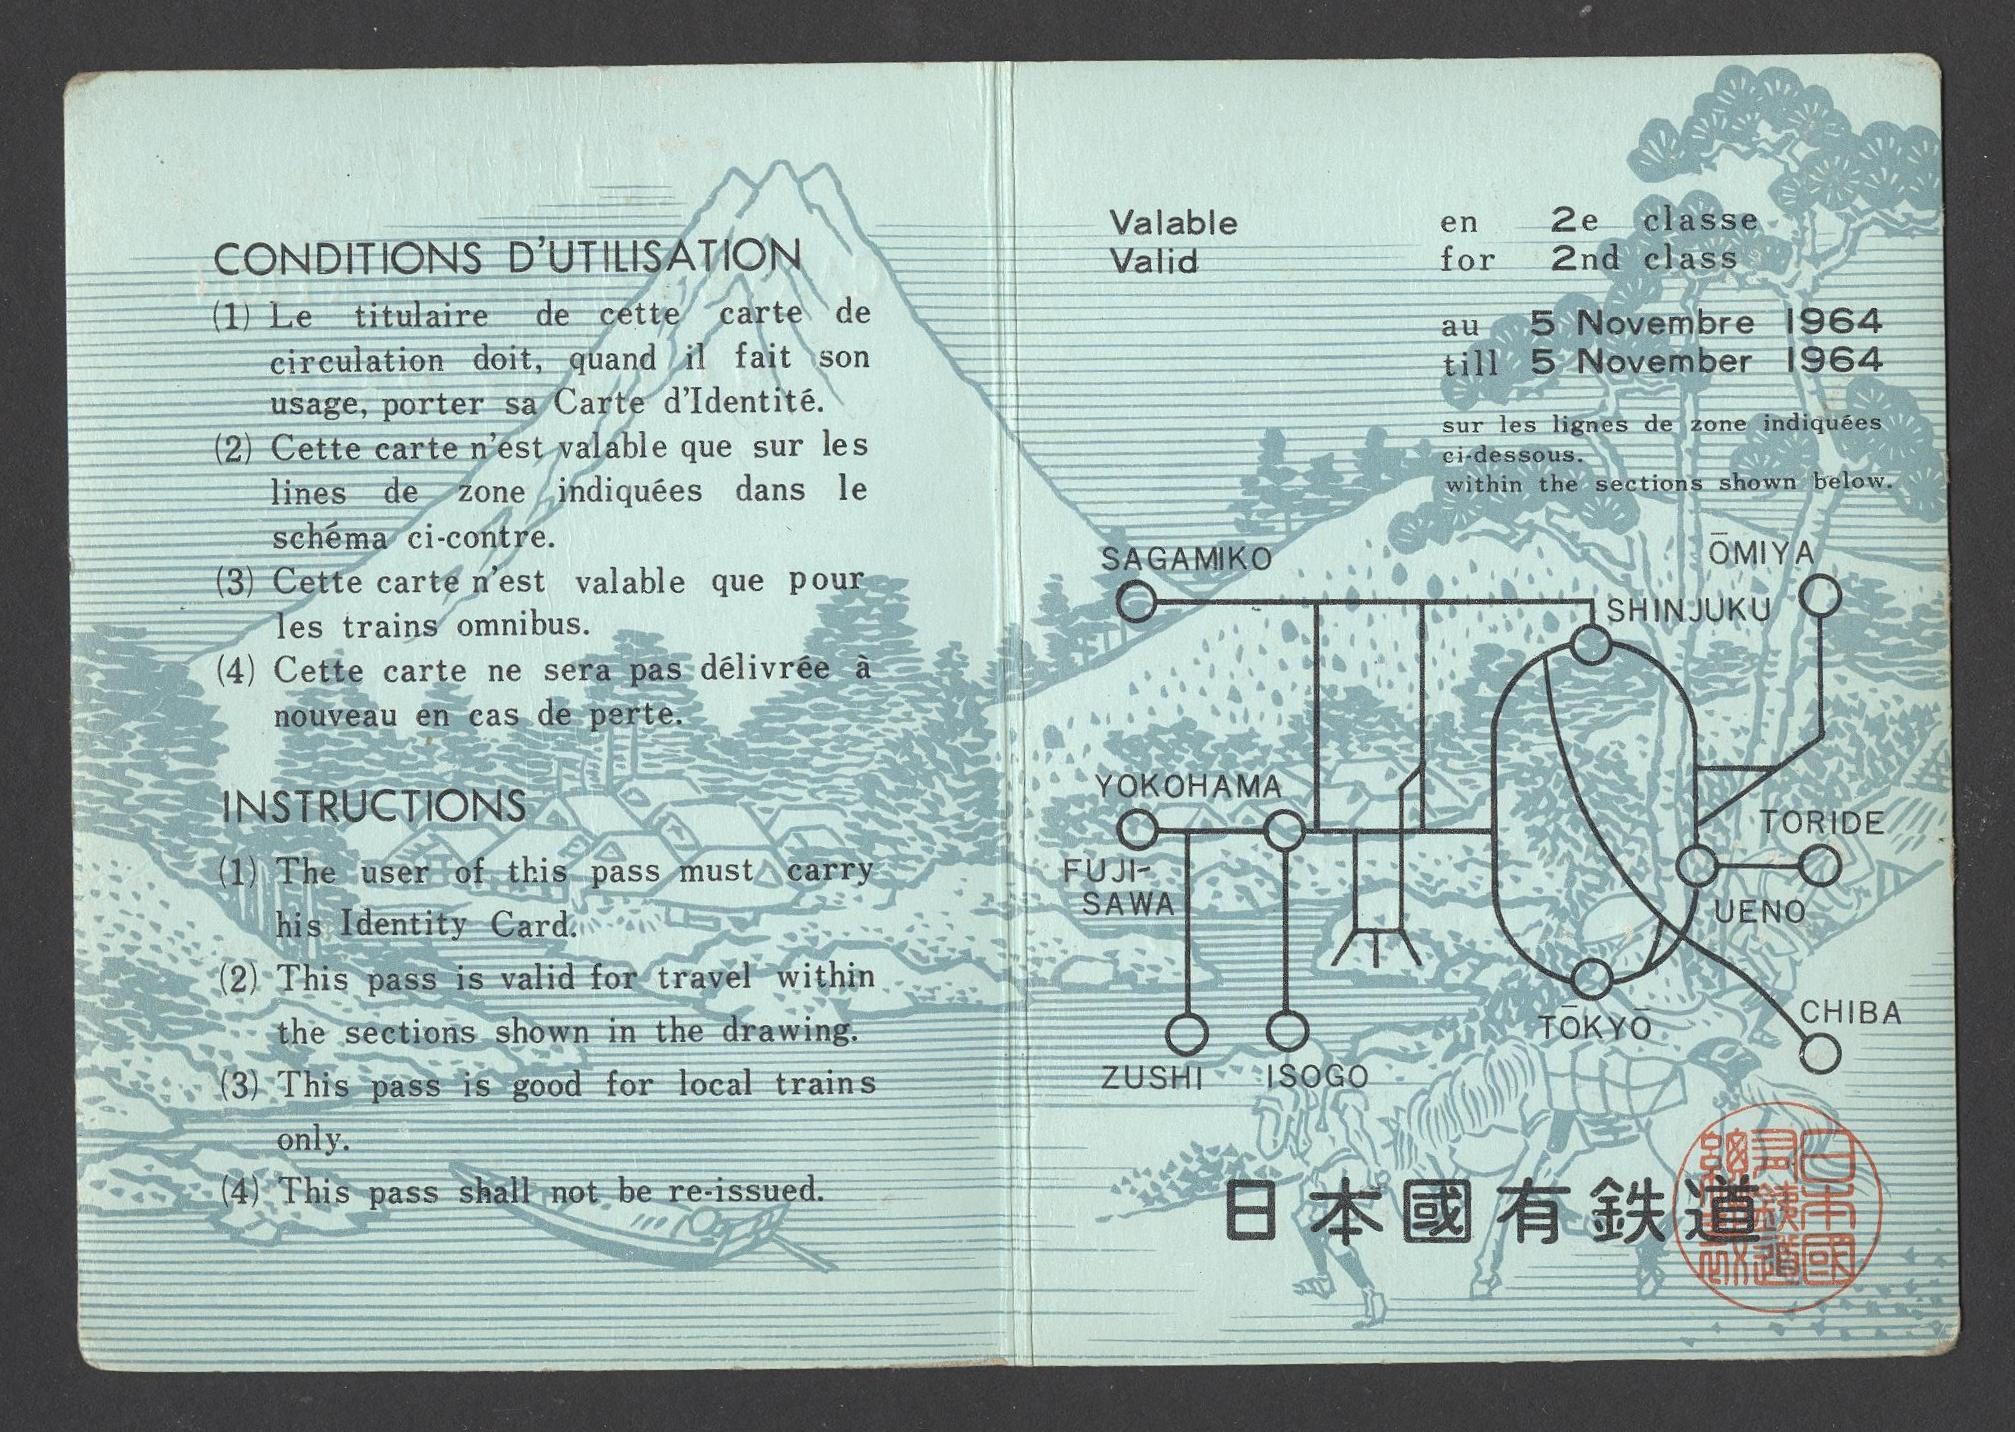 CONDITIONS D'UTILISATION
(1) Le titulaire de cette carte de
circulation doit, quand il fait son
usage, porter sa Carte d'Identité.
(2) Cette carte n'est valable que sur les
lines de zone indiquées dans le
schéma ci-contre.
(3) Cette carte n'est valable que pour
les trains omnibus.
(4) Cette carte ne sera pas délivrée à
nouveau en cas de perte.
INSTRUCTIONS
(1) The user of this pass must carry
his Identity Card.
(2) This pass is valid for travel within
the sections shown in the drawing.
(3) This pass is good for local trains
only.
(4) This pass shall not be re-issued.
Valable en 2e classe
Valid for 2nd class
au 5 Novembre 1964
till 5 November 1964
sur les lignes de zone indiquées
ci-dessous.
within the sections shown below.
SAGAMIKO
ŌMIYA
SHINJUKU
YOKOHAMA
TORIDE
FUJI-
SAWA
UENO
TŌKYŌ
CHIBA
ZUSHI
ISOGO
日本國有鉄道
日本國
有鉄道